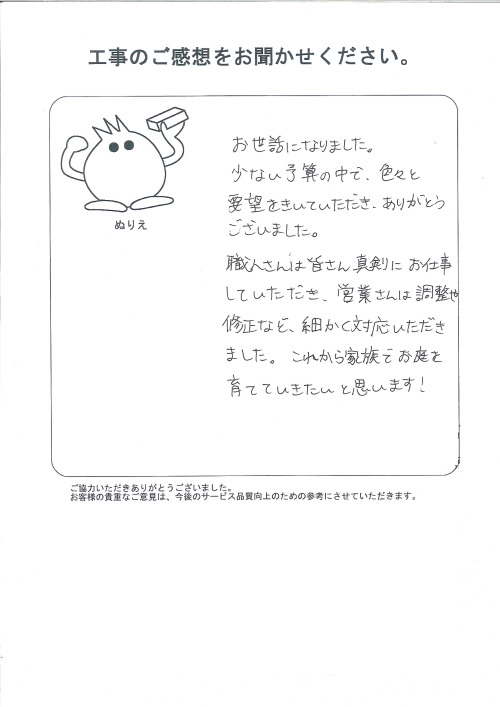 工事のご感想をお聞かせください。
ぬりえ
お世話になりました。
少ない予算の中で、色々と
要望をきいていただき、ありがとう
ございました。
職人さんは皆さん真剣にお仕事
していただき、営業さんは調整や
修正など、細かく対応いただき
ました。これから家族でお庭を
育てていきたいと思います!
ご協力いただきありがとうございました。
お客様の貴重なご意見は、今後のサービス品質向上のための参考にさせていただきます。